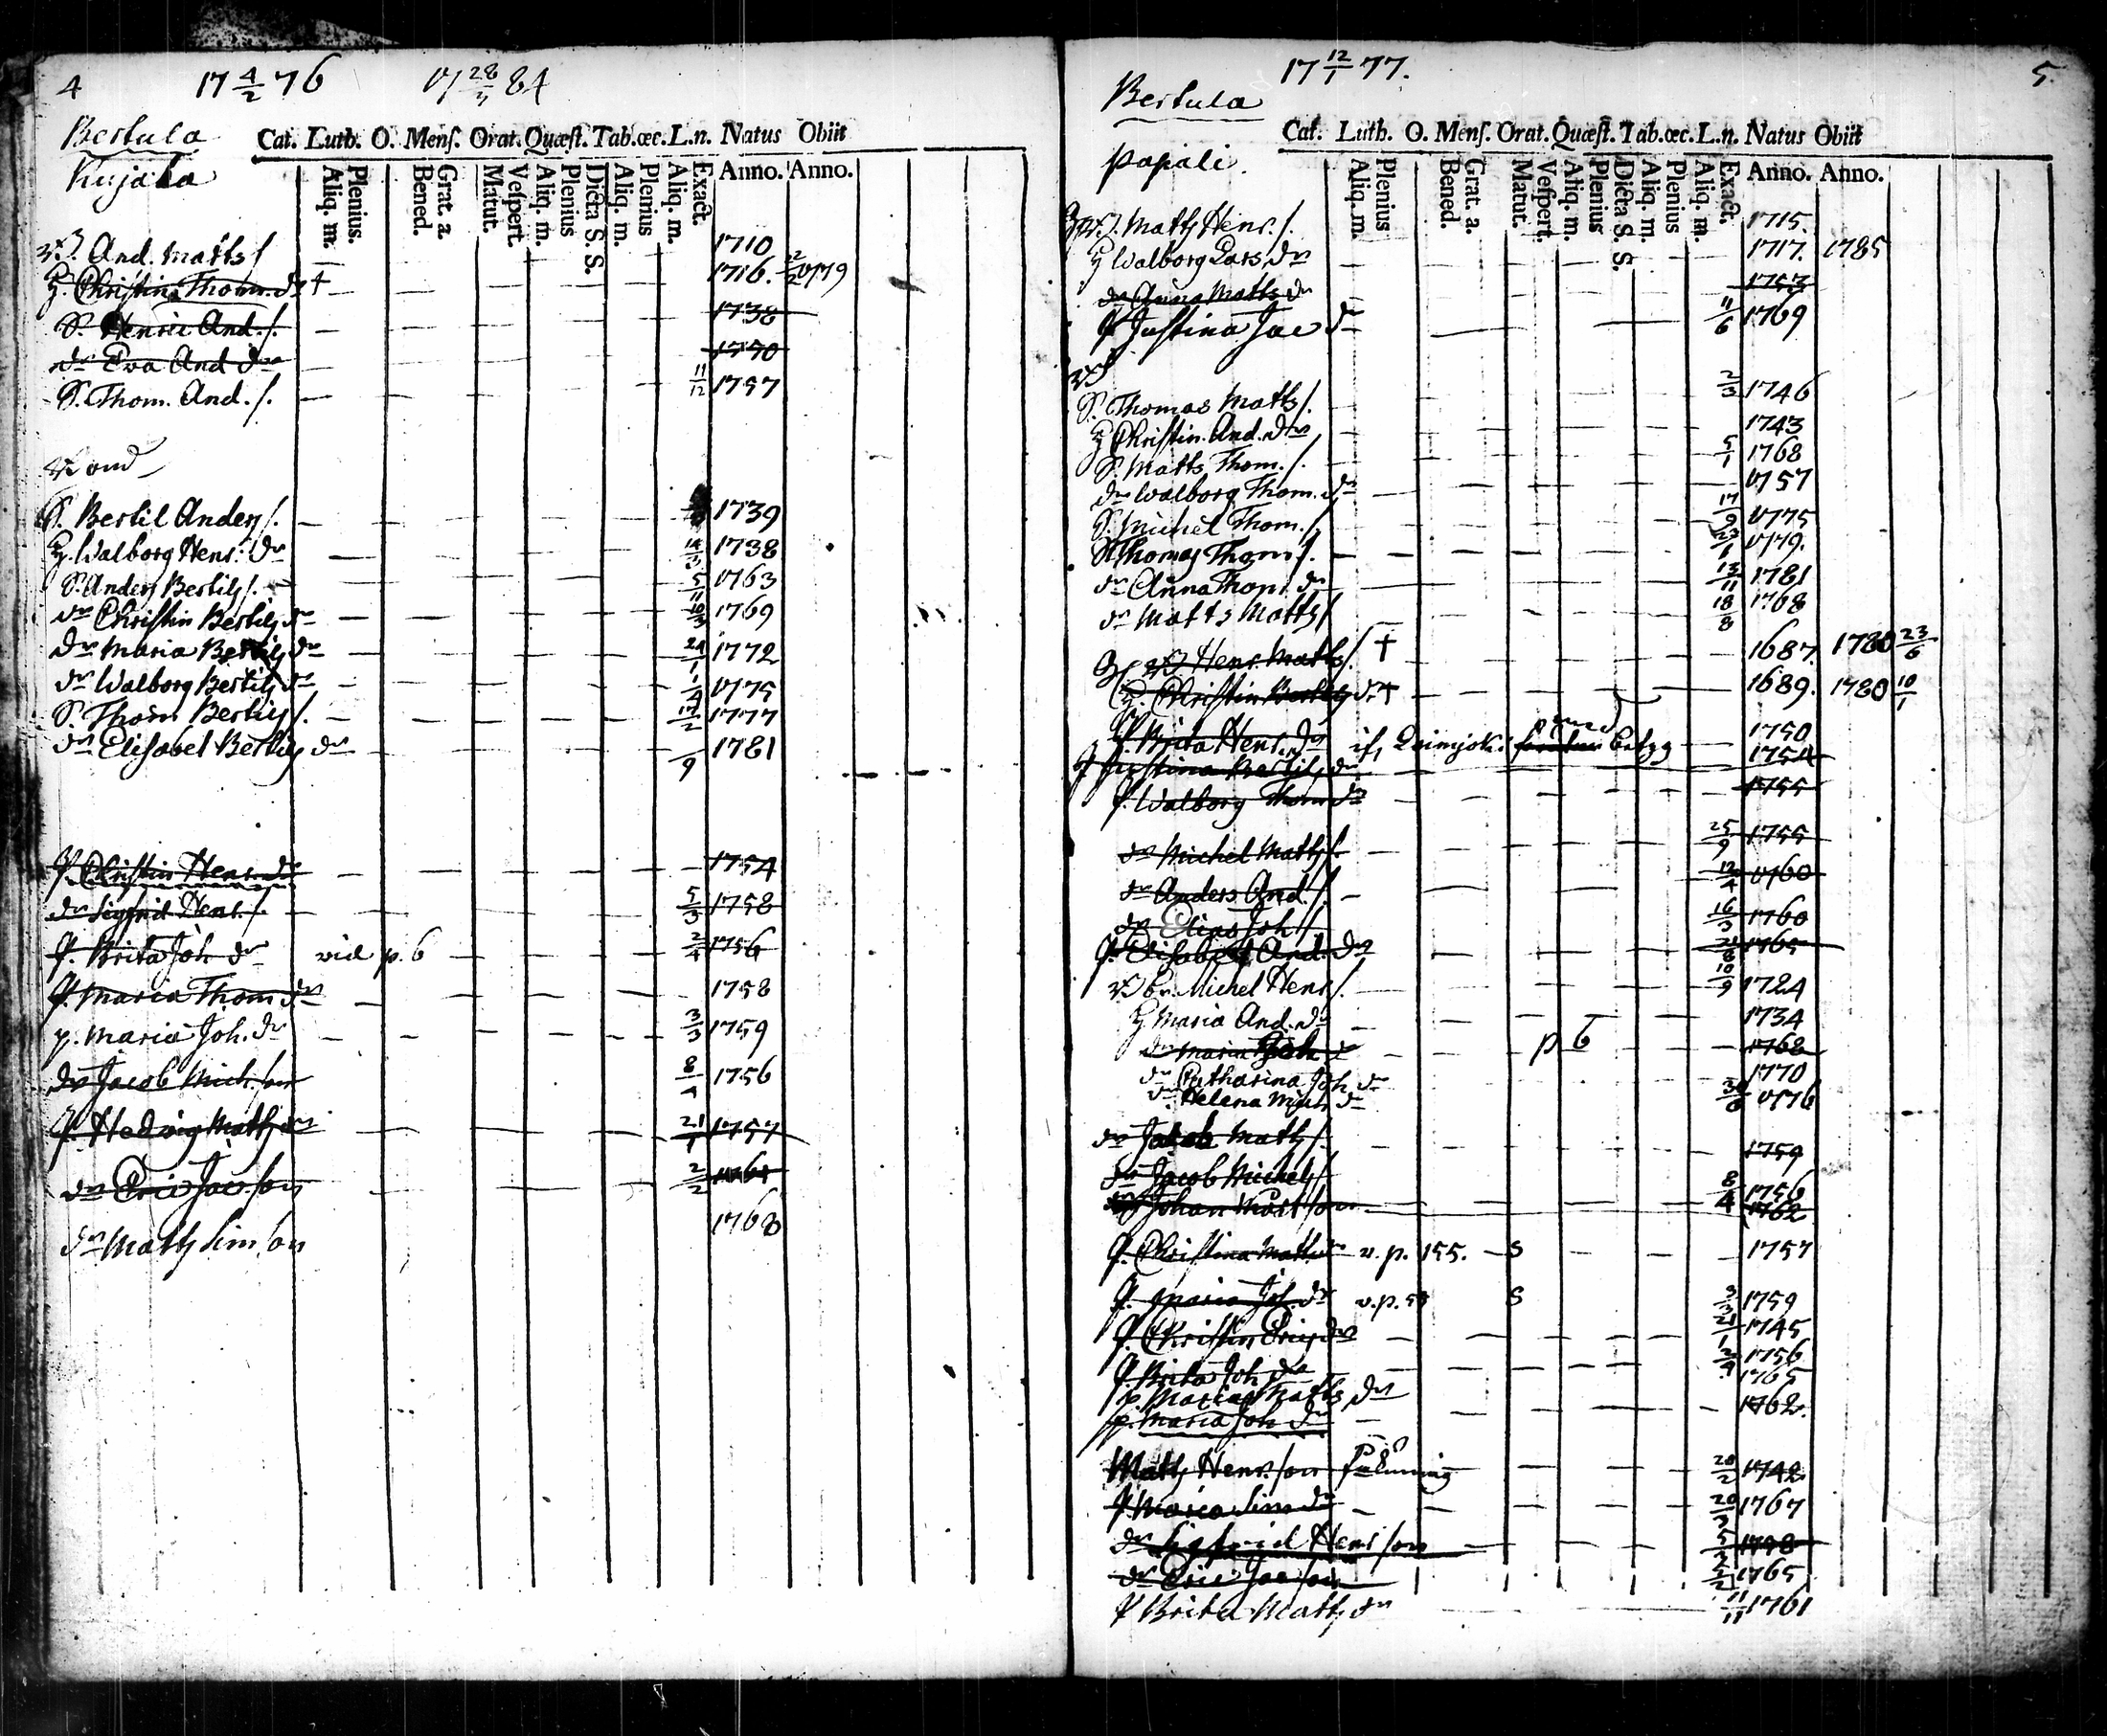 4 17 4/2 76 17 28/3 84
Bertula
Kujala
Cat. Luth. O. Menſ. Orat. Quæſt. Tab. œc. L.n. Natus Obiit
Aliq. m. Plenius. Bened. Grat. a. Matut. Veſpert. Aliq. m. Plenius Dicta S. S. Aliq. m. Plenius Aliq. m. Exact. Anno. Anno.
And. Matts ſ. 1710
H. Christin Thom. dr † 1716. 2/2 1779
S. Henric And. ſ. 1738
dr Eva And dr 1750
S. Thom. And. ſ. 11/12 1757
S. Bertil Anderſ ſ. 1739
H. Walborg Henr. dr 1738
S. Anders Bertilſ ſ. 1763
dr Christin Bertilſ dr 1769
dr Maria Bertilſ dr 1772
dr Walborg Bertilſ dr 1775
S. Thom Bertilſ ſ. 1777
dr Elisabet Bertilſ dr 1781
P. Christin Henr. dr 1754
dr Sigfrid Henr. ſ. 5/3 1758
P. Brita Joh dr vid p. 6 2/4 1756
P. Maria Thom dr 1758
p. Maria Joh. dr 3/3 1759
dr Jacob Mich. ſon 8/4 1756
P. Hedvig Matts dr 21/1 1757
dr Eric Jac. ſon 2/2
dr Matts Sim ſon 1768
17 12/1 77. 5.
Bertula
Papali.
Cat. Luth. O. Menſ. Orat. Quæſt. Tab. œc. L.n. Natus Obiit
Aliq. m. Plenius Bened. Grat. a. Matut. Veſpert. Aliq. m. Plenius Dicta S. S. Aliq. m. Plenius Aliq. m. Exact. Anno. Anno.
Matts Henr. ſ. 1715.
H Walborg Lars dr 1717. 1785
dr Anna Matts dr 1753
P Justina Jac dr 11/6 1769
S. Thomas Matts ſ. 2/3 1746
H Christin. And. dr 1743
S. Matts Thom. ſ. 5/1 1768
dr Walborg Thom. dr 1757
S. Michel Thom. ſ. 17/9 1775
S. Thomas Thom ſ. 1779.
dr Anna Thom dr 13/11 1781
dr Matts Matts ſ 18/8 1768
Henr. Matts ſ. † 1687. 1780 23/6
H. Christin Bertils dr † 1689. 1780 10/1
P. Brita Henr. dr 1750
P Justina Bertils dr 1754
P. Walborg Thom dr 1755
dr Michel Matts ſ. 25/9 1755
dr Anders And. ſ. 12/4 1760
dr Elias Joh ſ 16/3 1760
P. Elisabet And. dr 1765
br. Michel Henr. ſ. 10/9 1724
H Maria And. dr 1734
dr Maria Joh dr p 6 1768
dr Catharina Joh dr 1770
dr Helena Mich dr 1776
dr Jacob Matts ſ. 1759
dr Jacob Michels ſ 8/4 1756
Johan Matt ſon 1762
P. Christina Matts dr v. p. 155. S 1757
P. Maria Joh. dr v. p. S 3/3 1759
P. Christin Erics dr 1745
P. Brita Joh dr 1756
p. Maria Matts dr 1765
p. Maria Joh dr 1762.
Matts Henr. ſon 20/2 1742
P Maria Sim dr 1767
dr Sigfrid Henr ſon
dr Eric Jac ſon 1765
P Brita Matts dr 11/11 1761